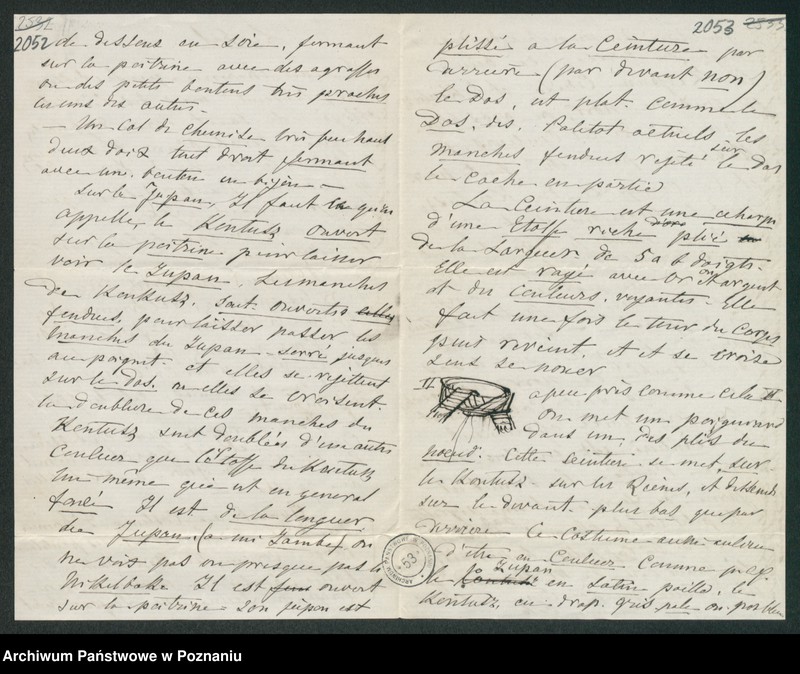 2052
de dessous en soie, fermant
sur la poitrine avec des agraffes
ou des petits boutons très proches
les uns des autres.
— Un col de chemise très peu haut
deux doigts tout droit fermant
avec un bouton en bijou —
Sur le Jupan, Il faut ce qu'on
appelle, le Kontusz ouvert
sur la poitrine pour laisser
voir le Jupan. Les manches
du Kontusz. sont ouvertes
fendues, pour laisser passer les
manches du Jupan - serré jusques
au poignet. et elles se rejettent
sur le dos. ou elles se croisent.
la doublure de ces manches du
Kontusz sont doublées d'une autre
Couleur que l'étoffe du Kontusz
lui même qui est en general
foncé Il est de la longuer
du Jupan (a mi Jambe) on
ne vois pas ou presque pas le
Il est ouvert
sur la poitrine - son jupon est
2053
plissé a la Ceinture par
derrière (par devant non)
le Dos, est plat. comme le
Dos, des, Paletot actuels - les
manches fendues rejeté sur le dos
le cache en partie
La Ceinture est une echarpe
d'une Etoffe riche d'or plié
de la Largeur de 5 a 6 doigts.
Elle est rayé avec Or ou argent
et des Couleurs, voyantes - Elle
fait une fois le tour du Corps
puis revient. et se croise
sans se nouer
a peu près comme cela #
on met un poignard
dans un, des plis du
noeud. Cette Ceinture se met, sur
le Kontusz sur les Reins, et descends
sur le devant plus bas que par
derrière Ce Costume
d'etre en Couleur Comme p. ex.
le Jupan en satin paille, le
Kontusz en drap. gris pale ou
ARCHIWUM PAŃSTWOWE W POZNANIU
53
Archiwum Państwowe w Poznaniu